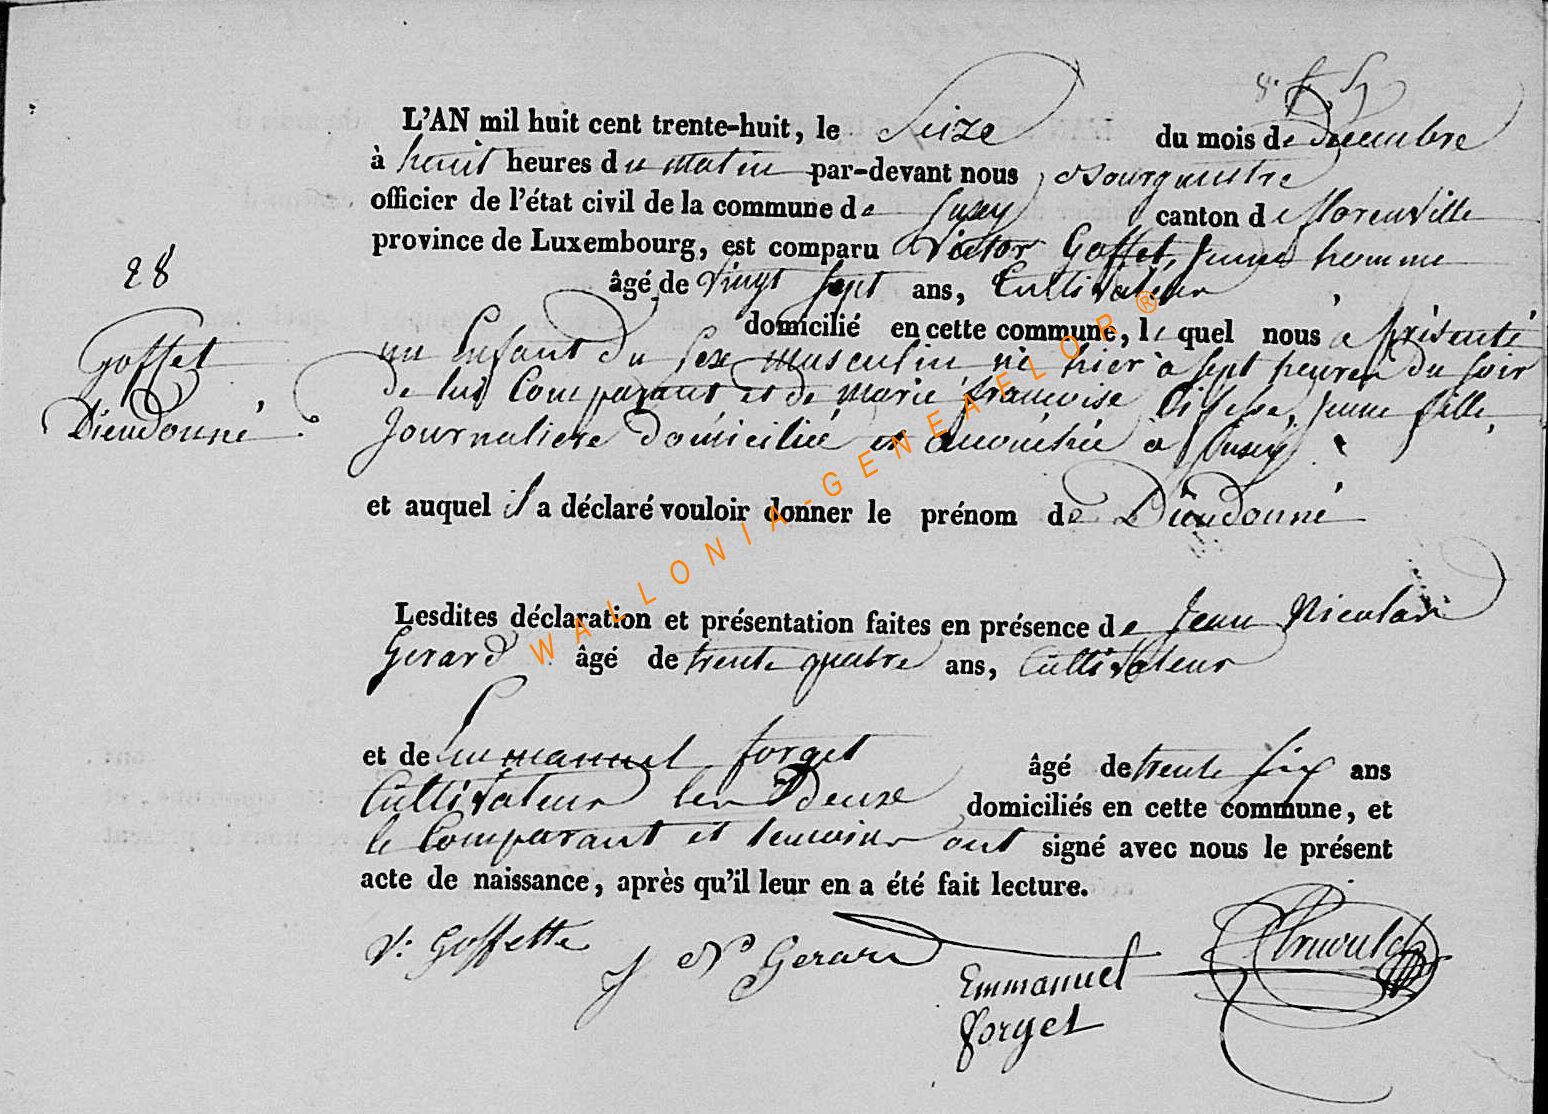 L'AN mil huit cent trente-huit, le Seize du mois de Decembre
à huit heures du matin par-devant nous, Bourgmestre
officier de l'état civil de la commune de Jusey canton de
province de Luxembourg, est comparu Victor Goffet, jeune homme
28
âgé de Vingt Sept ans, Cultivateur
domicilié en cette commune, le quel nous a présenté
Goffet
Dieudonné
un Enfant du Sexe masculin, né hier à sept heures du soir
de lui Comparant et de marie françoise jeune fille,
Journaliere domiciliée et accouchée à Jusey
et auquel il a déclaré vouloir donner le prénom de Dieudonné
Lesdites déclaration et présentation faites en présence de Jean Nicolas
Gerard âgé de trente quatre ans, Cultivateur
et de Emmanuel forget âgé de trente six ans
Cultivateur les deux domiciliés en cette commune, et
le Comparant et temoins ont signé avec nous le présent
acte de naissance, après qu'il leur en a été fait lecture.
V. Goffette
J N Gerard
Emmanuel
forget
WALLONIA-GENEAELOR®